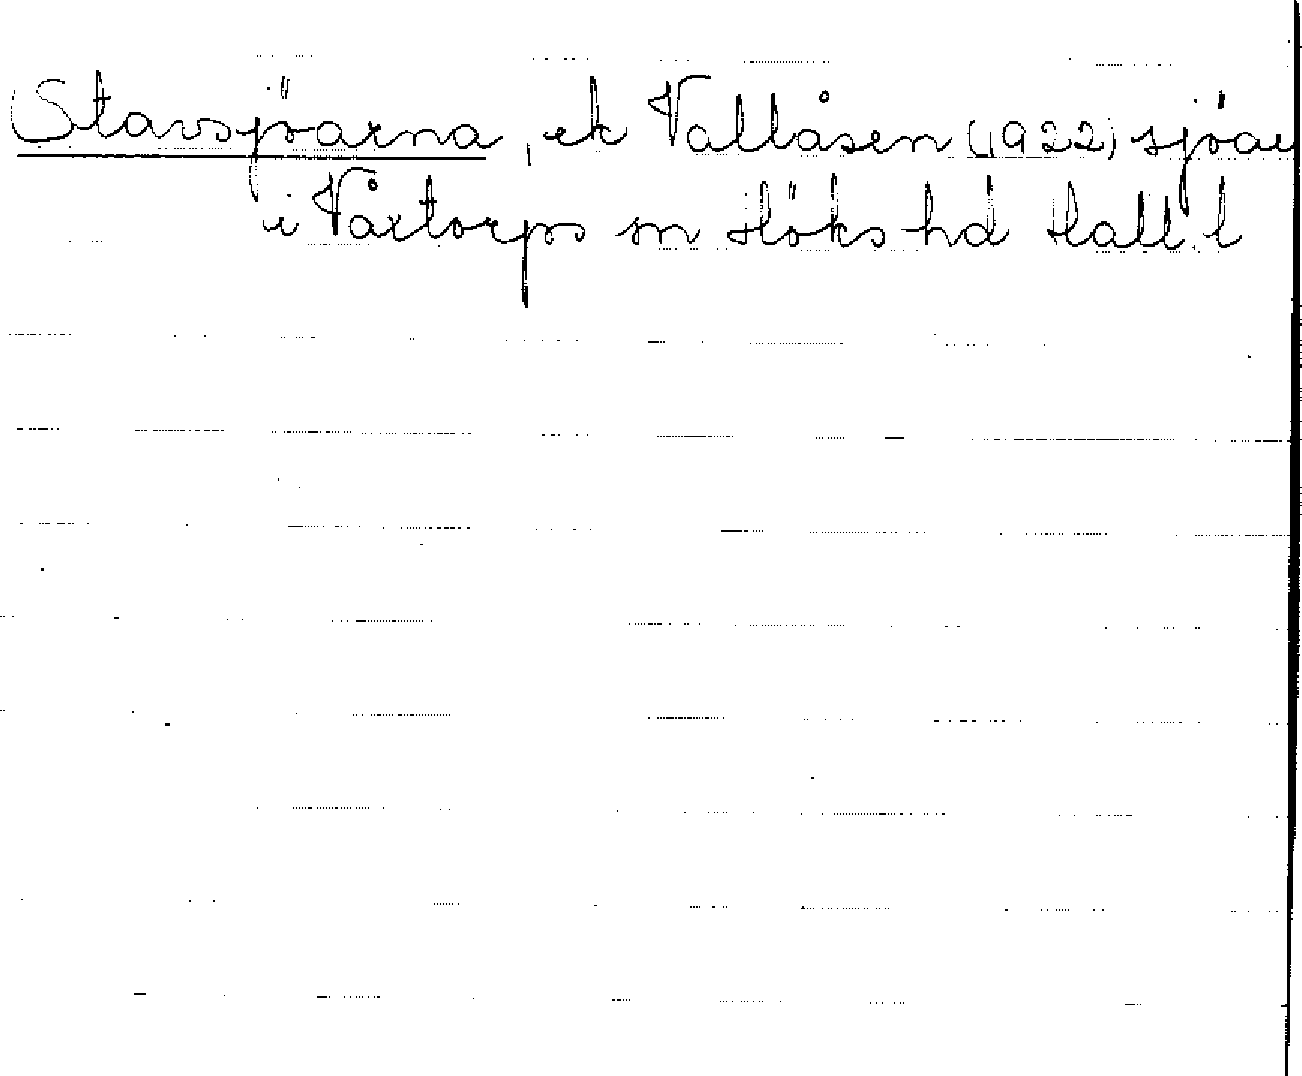 Stavsjöarna, ek Vallåsen (1922) sjöar
i Våxtorps sn Höks hd Hall. l